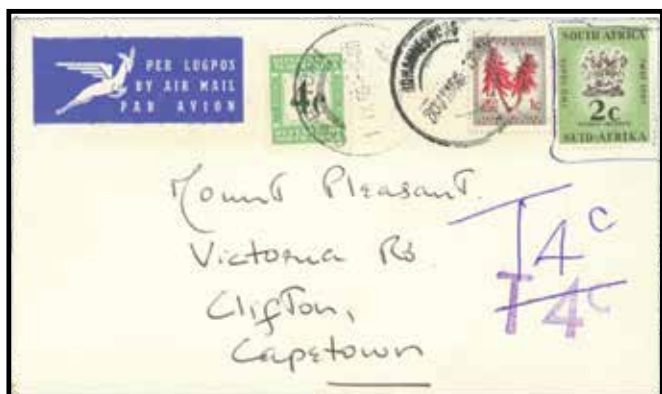 PER LUGPOS
BY AIR MAIL
PAR AVION
4c
JOHANNESBURG
1c
SOUTH AFRICA
2c
SUID-AFRIKA
Mount Pleasant.
Victoria Rd.
Clifton,
Capetown
T 4c
T 4c